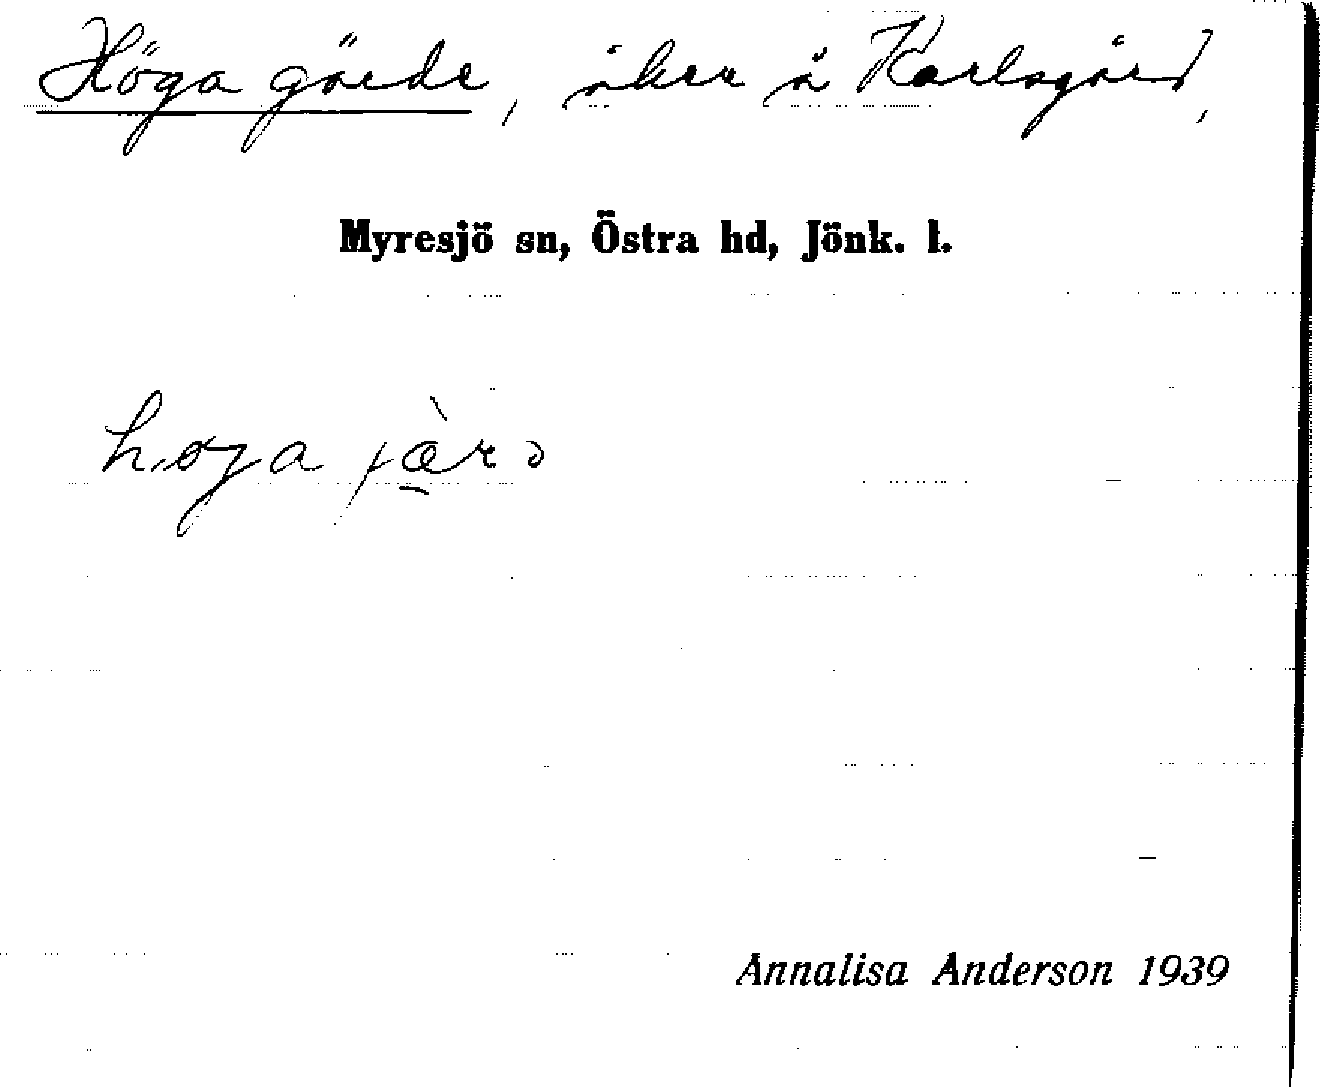 Höga gärde, åker å Karlsgård,
Myresjö sn, Östra hd, Jönk. l.
Annalisa Anderson 1939